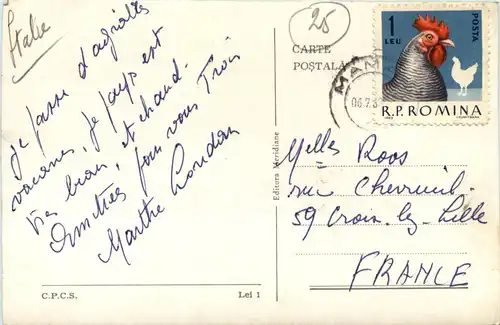 Italie
Je passe d'agréables
vacances, le pays est
très beau, et chaud.
Amitiés pour vous Trois
Marthe
25
CARTE
POȘTALĂ
MAM
06.7.6
1
LEU
POSTA
R.P. ROMINA
Editura Meridiane
Melles Roos
rue Chevreuil
59 Croix-lez-Lille
FRANCE
C.P.C.S.
Lei 1